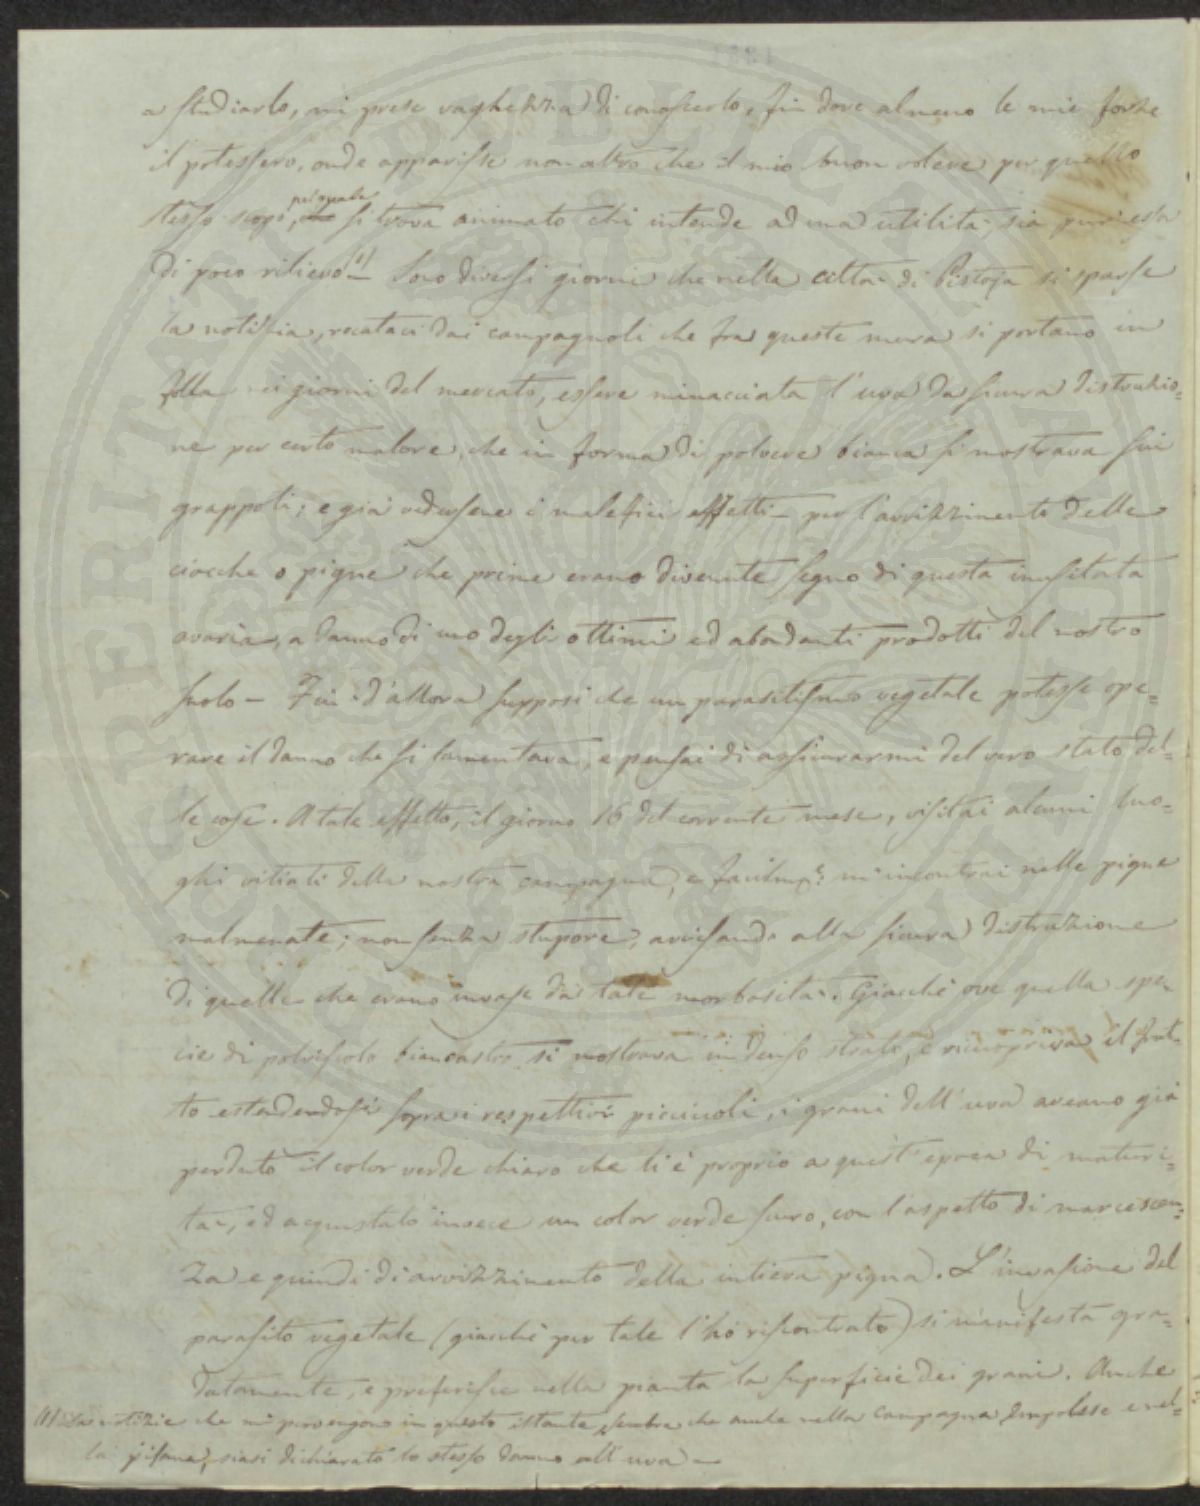 a studiarlo, mi prese vaghezza di conoscerlo, fin dove almeno le mie forze
il potessero, onde apparisse non altro che il mio buon volere, per quello
stesso scopo, pel quale si trova animato chi intende ad una utilità sia pur essa
di poco rilievo (1) — Sono diversi giorni che nella città di Pistoja si sparse
la notizia, recataci dai campagnoli che fra queste mura si portano in
folla nei giorni del mercato, essere minacciata l'uva da sicura distruzio=
ne per certo malore, che in forma di polvere bianca si mostrava sui
grappoli; e già vedersene i malefici effetti — per l'avvizzimento delle
ciocche o pigne che prime erano divenute segno di questa inusitata
avaria, a danno di uno degli ottimi ed abondanti prodotti del nostro
suolo — Fin d'allora supposi che un parasitismo vegetale potesse ope=
rare il danno che si lamentava, e pensai di assicurarmi del vero stato del=
le cose. A tale effetto, il giorno 16 del corrente mese, visitai alcuni luo=
ghi vitiati della nostra campagna, e facilme m'incontrai nelle pigne
malmenate; non senza stupore, avvisando alla sicura distruzione
di quelle che erano invase da tale morbosità. Giacchè ove quella spe=
cie di polviscolo biancastro si mostrava in denso strato, e ricuopriva il frut=
to estendendosi sopra i respettivi picciuoli, i grani dell'uva aveano già
perduto il color verde chiaro che li è proprio a quest'epoca di maturi=
tà, ed acquistato invece un color verde scuro, con l'aspetto di marcescen=
za e quindi di avvizzimento della intiera pigna. L'invasione del
parasito vegetale (giacchè per tale l'ho riscontrato) si manifesta gra=
datamente, e preferisce nella pianta la superficie dei grani. Anche
(1) La notizie che mi pervengono in questo istante, sembra che anche nella Campagna Empolese e nel=
la pisana, siasi dichiarato lo stesso danno all'uva —